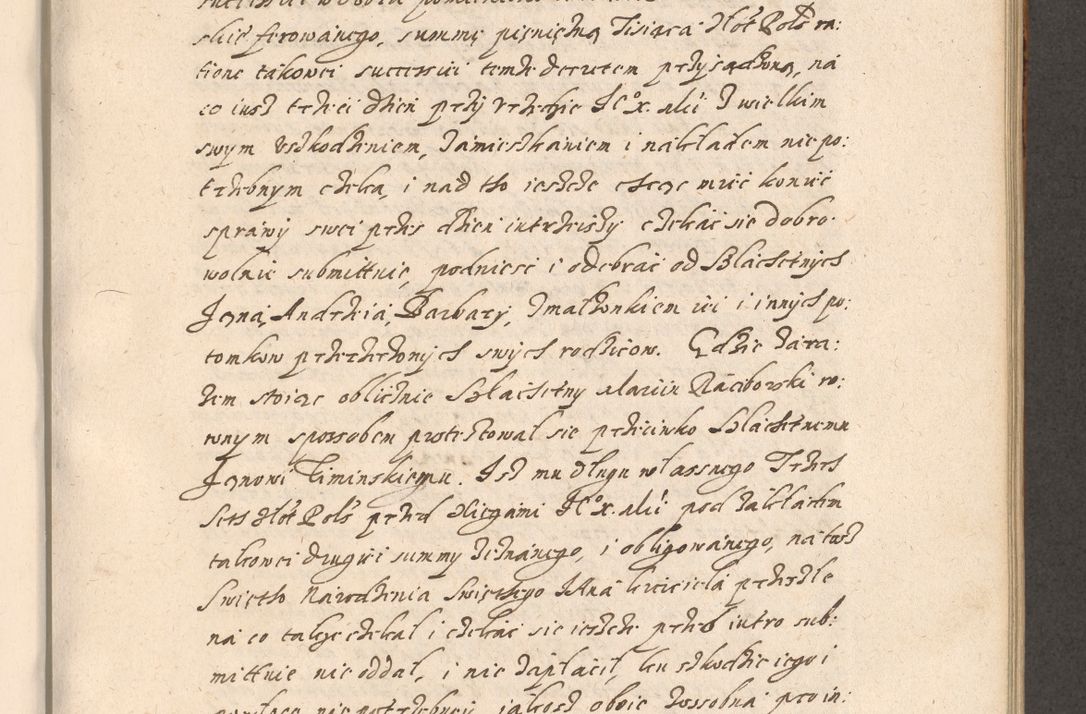 skie ferowanego, summę pieniężną Tisiąca Złot Pols ra:
tione takowei successiei temże decretem przysądzoną, na
co iusz trzeci dzien przy Vrzędzie z wielkim
swym Vszkodzeniem, Zamieszkaniem i nakładem niepo:
trzebnym czeka, i nad tho ieszcze chcąc mieć koniec
sprawy swei przes dzien intrzeiszy czekać sie dobro
wolnie submittuie, podnieść i odebrać od Slachetnych
Jana, Andrzeia, Barbary, Zmałżonkiem iei i innych po:
tomkow przerzeczonych swych rodzicow. Gdzie Zara:
Zem stoiąc oblicznie Slachetny Marcin Raciborski ro:
wnym sposobem protestował sie przeciwko Slachetnemu
Janowi Ziminskiemu. Isz mu długu własnego Trzech
Seth Złot Pols przed Xięgami pod Zakładem
takowei drugiei summy Zeznanego, i obligowanego, na tosz
Swięto Narodzenia Swiętego Jana krzciciela przeszłe
na co takze czekał i czekać sie ieszcze przes iutro sub:
mittuie nie oddał, i nie Zapłacił, ku szkodzie iego i